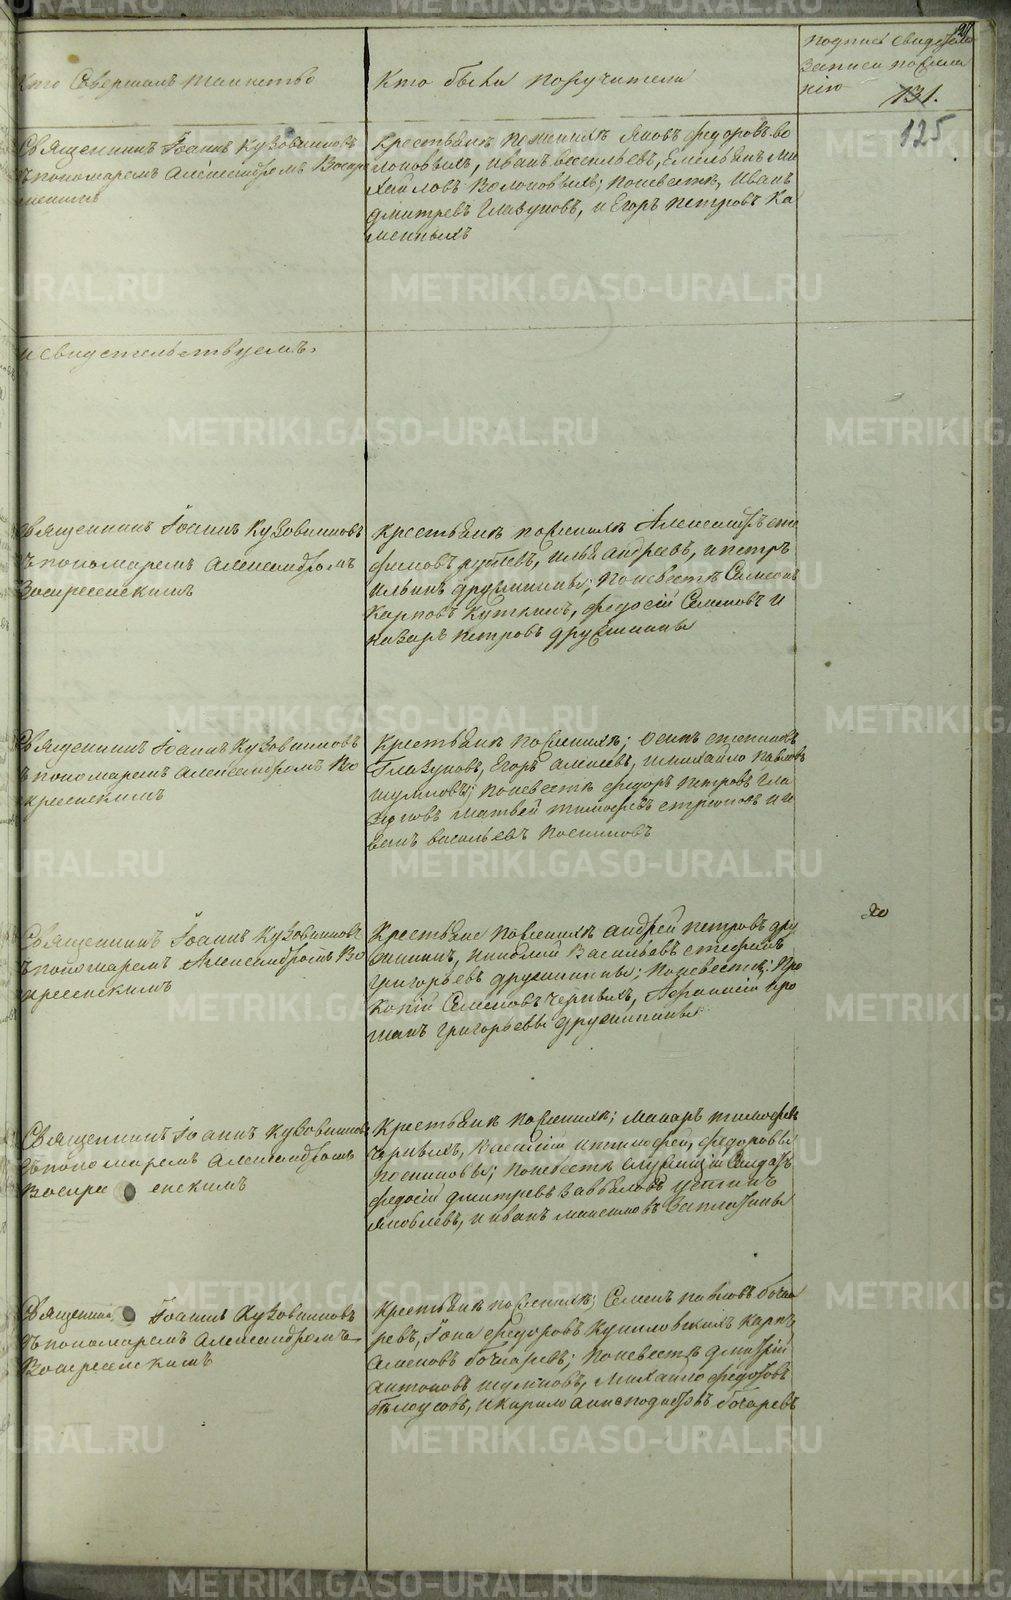 Кто Совершалъ таинство
Кто были поручители
Подпись свидетелей
записи по жела
нію
131.
125
Священникъ Іоаннъ Кузовниковъ
съ пономаремъ Александромъ Воскре
сенскимъ
Крестьяне по женихѣ Яковъ федоровъ во
локовыхъ, иванъ васильевъ, Емельянъ Ми
хайловъ Волоковыхъ; По невестѣ, Иванъ
дмитревъ Глазуновъ, и Егоръ петровъ Ка
менныхъ
и свидетельствуемъ.
Священникъ Іоаннъ Кузовниковъ
съ пономаремъ Александромъ
Воскресенскимъ
Крестьяне по женихѣ Александръ сте
фановъ илья андреевъ, и петръ
ильинъ дружинины; По невестѣ Симеонъ
Карповъ Куткинъ, федосій Семеновъ и
назаръ петровъ дружинины
Священникъ Іоаннъ Кузовниковъ
съ пономаремъ Александромъ Во
скресенскимъ
Крестьяне по женихѣ; осипъ
Глазуновъ, Егоръ и михайло Павловъ
шуминовы; По невестѣ федоръ петровъ Гла
зуновъ матвей тимофеевъ и и
ванъ васильевъ Посниковъ
Священникъ Іоаннъ Кузовниковъ
съ пономаремъ Александромъ Во
скресенскимъ
Крестьяне по женихѣ андрей петровъ дру
жининъ, Николай Васильевъ стефанъ
григорьевъ дружинины; По невестѣ; Про
копій Семеновъ Черныхъ, Афанасій про
григорьевы дружинины
Священникъ Іоаннъ Кузовниковъ
съ пономаремъ Александромъ
Воскресенскимъ
Крестьяне по женихѣ; Макаръ тимофеевъ
Черныхъ, Василій и тимофей, федоровы
посниковы; По невестѣ служащій Солдатъ
федосій дмитревъ устинъ
Яковлевъ, и иванъ максимовъ Заплатины
Священникъ Іоаннъ Кузовниковъ
съ пономаремъ Александромъ
Воскресенскимъ
Крестьяне по женихѣ; Семенъ павловъ боча
ревъ, Іона федоровъ Куниловскихъ карпъ
бочаревъ; По невестѣ дмитрій
антоновъ шуминовъ, михайло федотовъ
белоусовъ, и кирило бочаревъ
METRIKI.GASO-URAL.RU